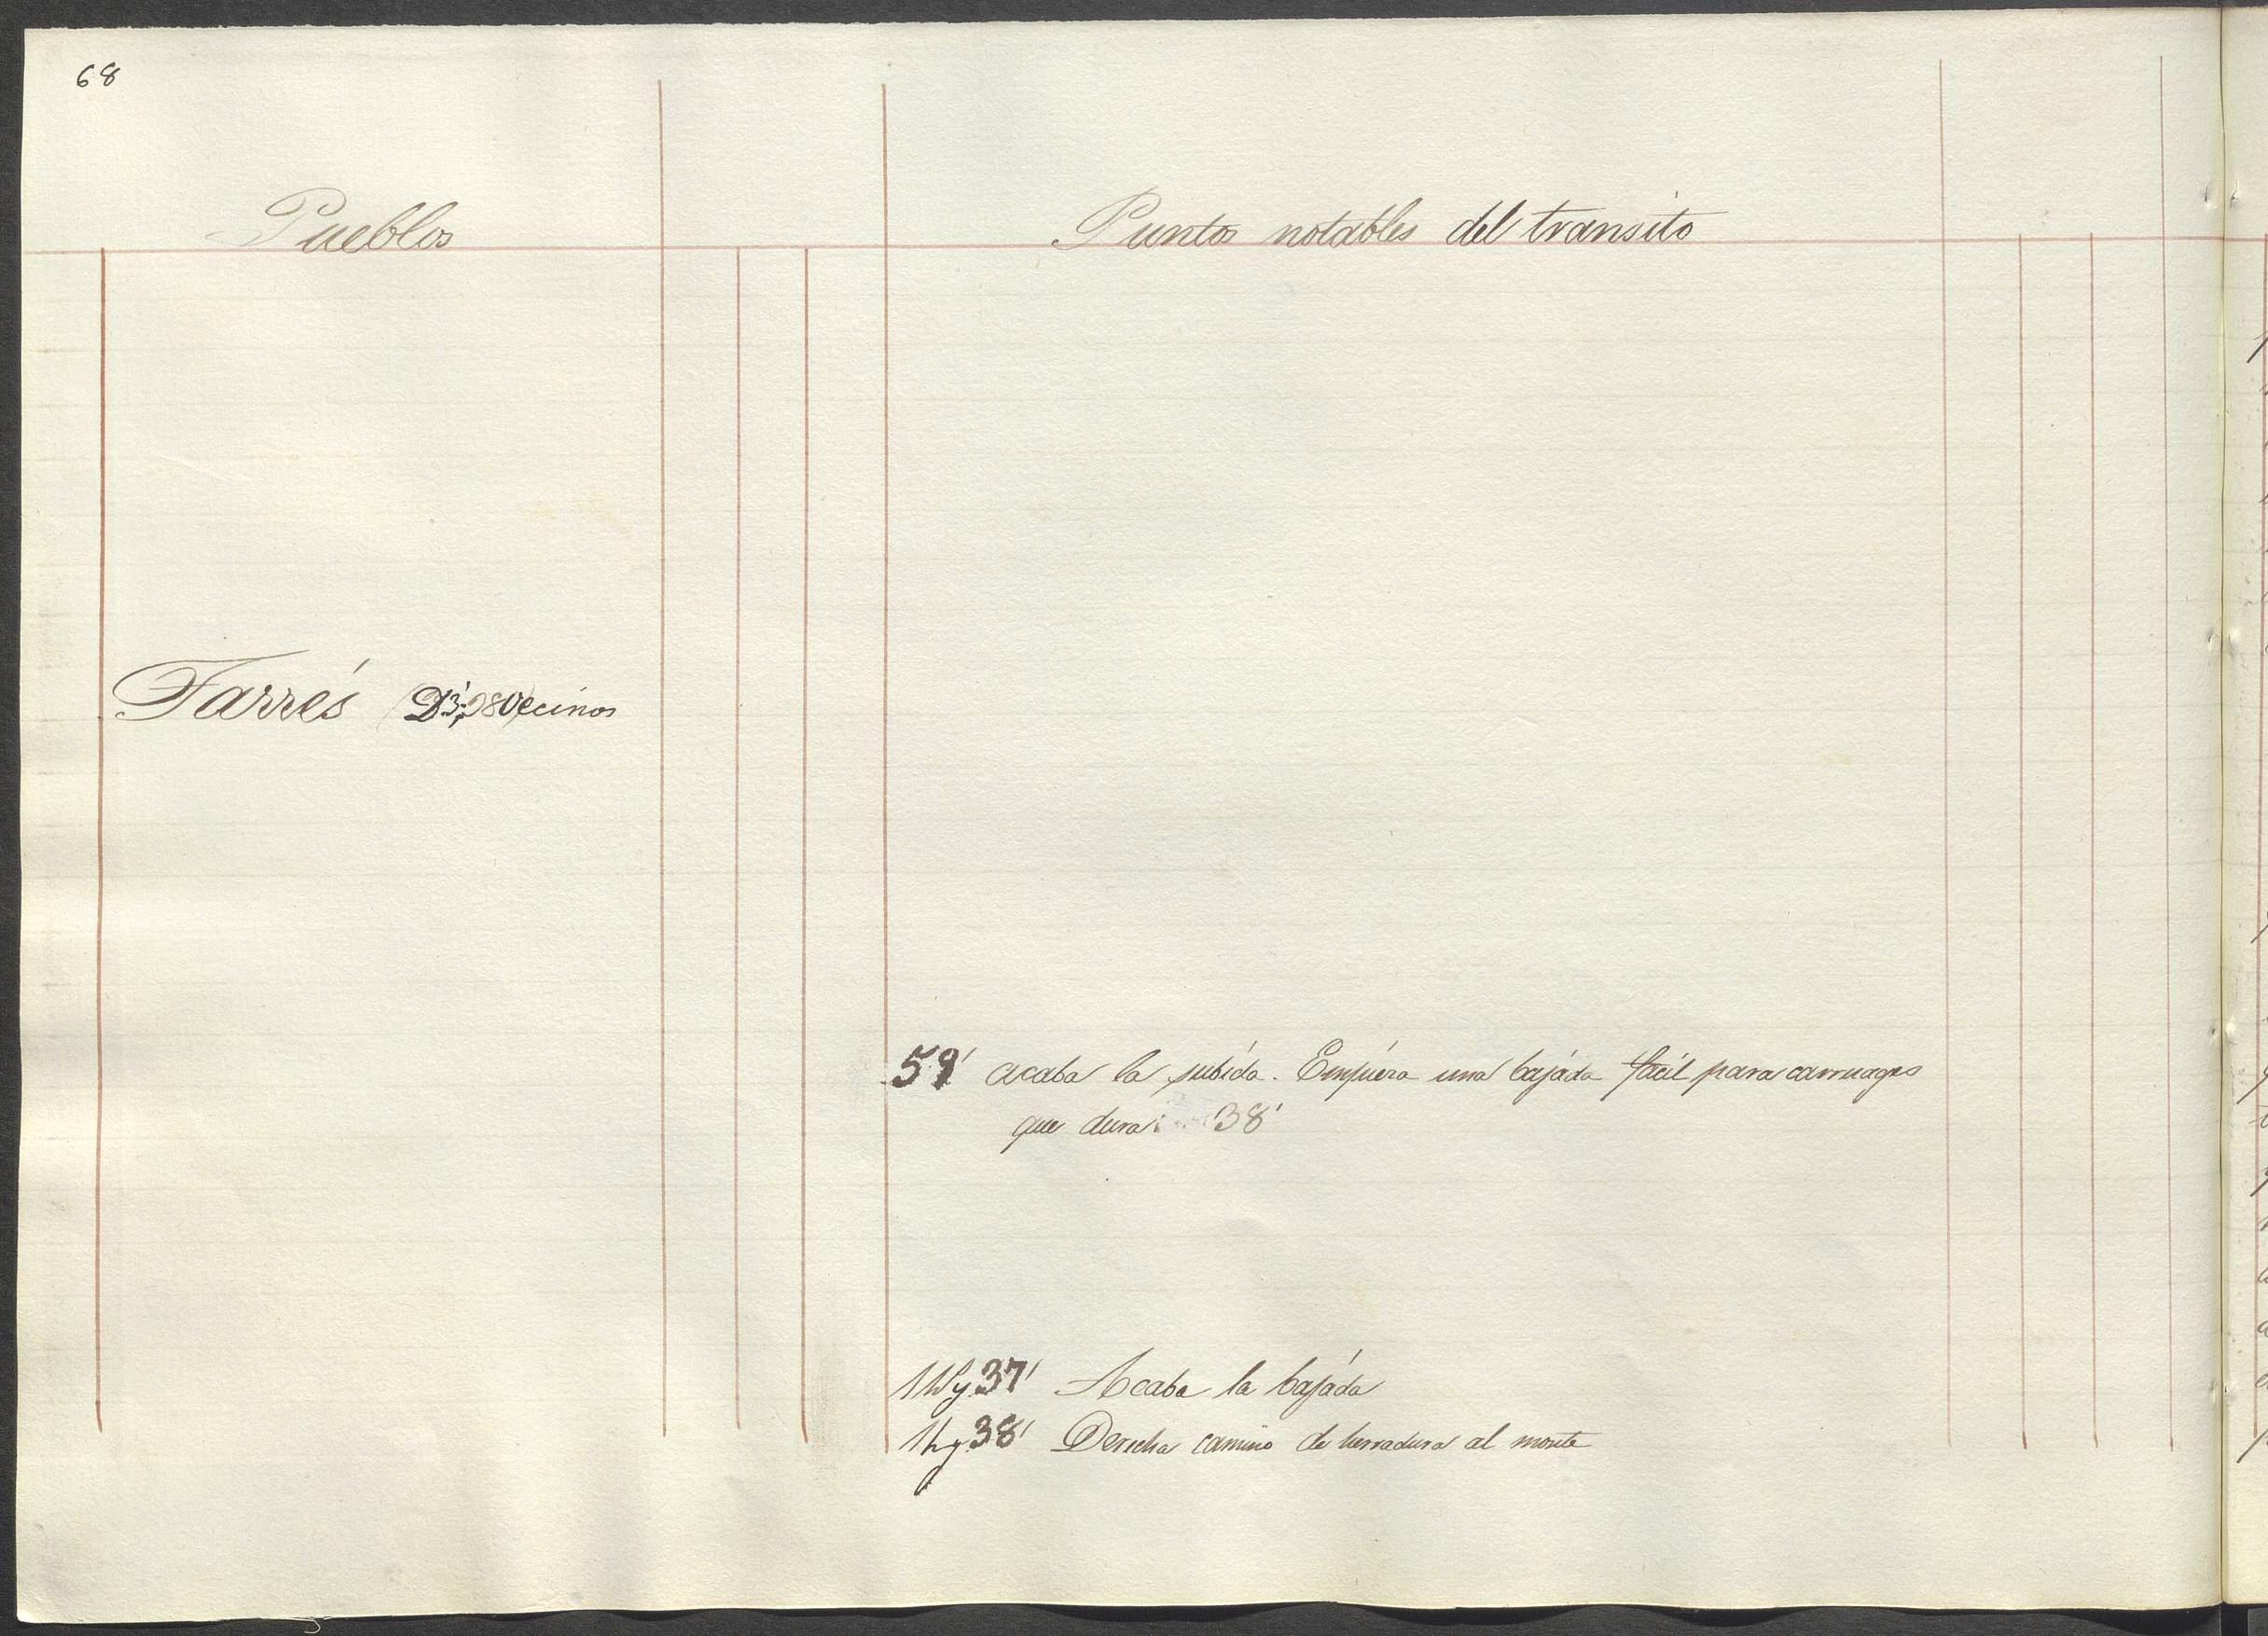 68
Pueblos
Puntos notables del transito
Farrés 80 vecinos
59' acaba la subida. Empieza una bajada facil para carruages
que dura 38'
1 h y 37' Acaba la bajada
1 h y 38' Derecha camino de herradura al monte